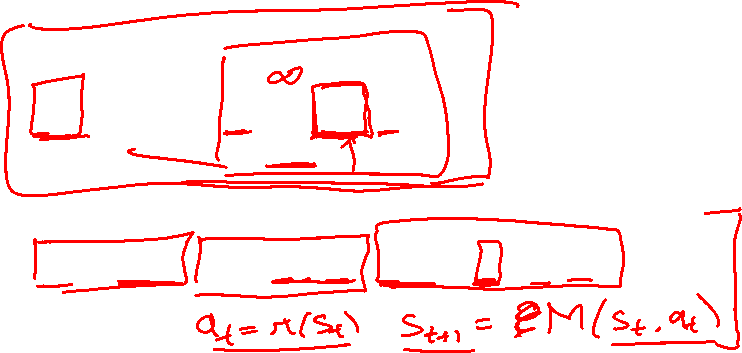 ∞
a_t = π(s_t) s_{t+1} = M(s_t, a_t)